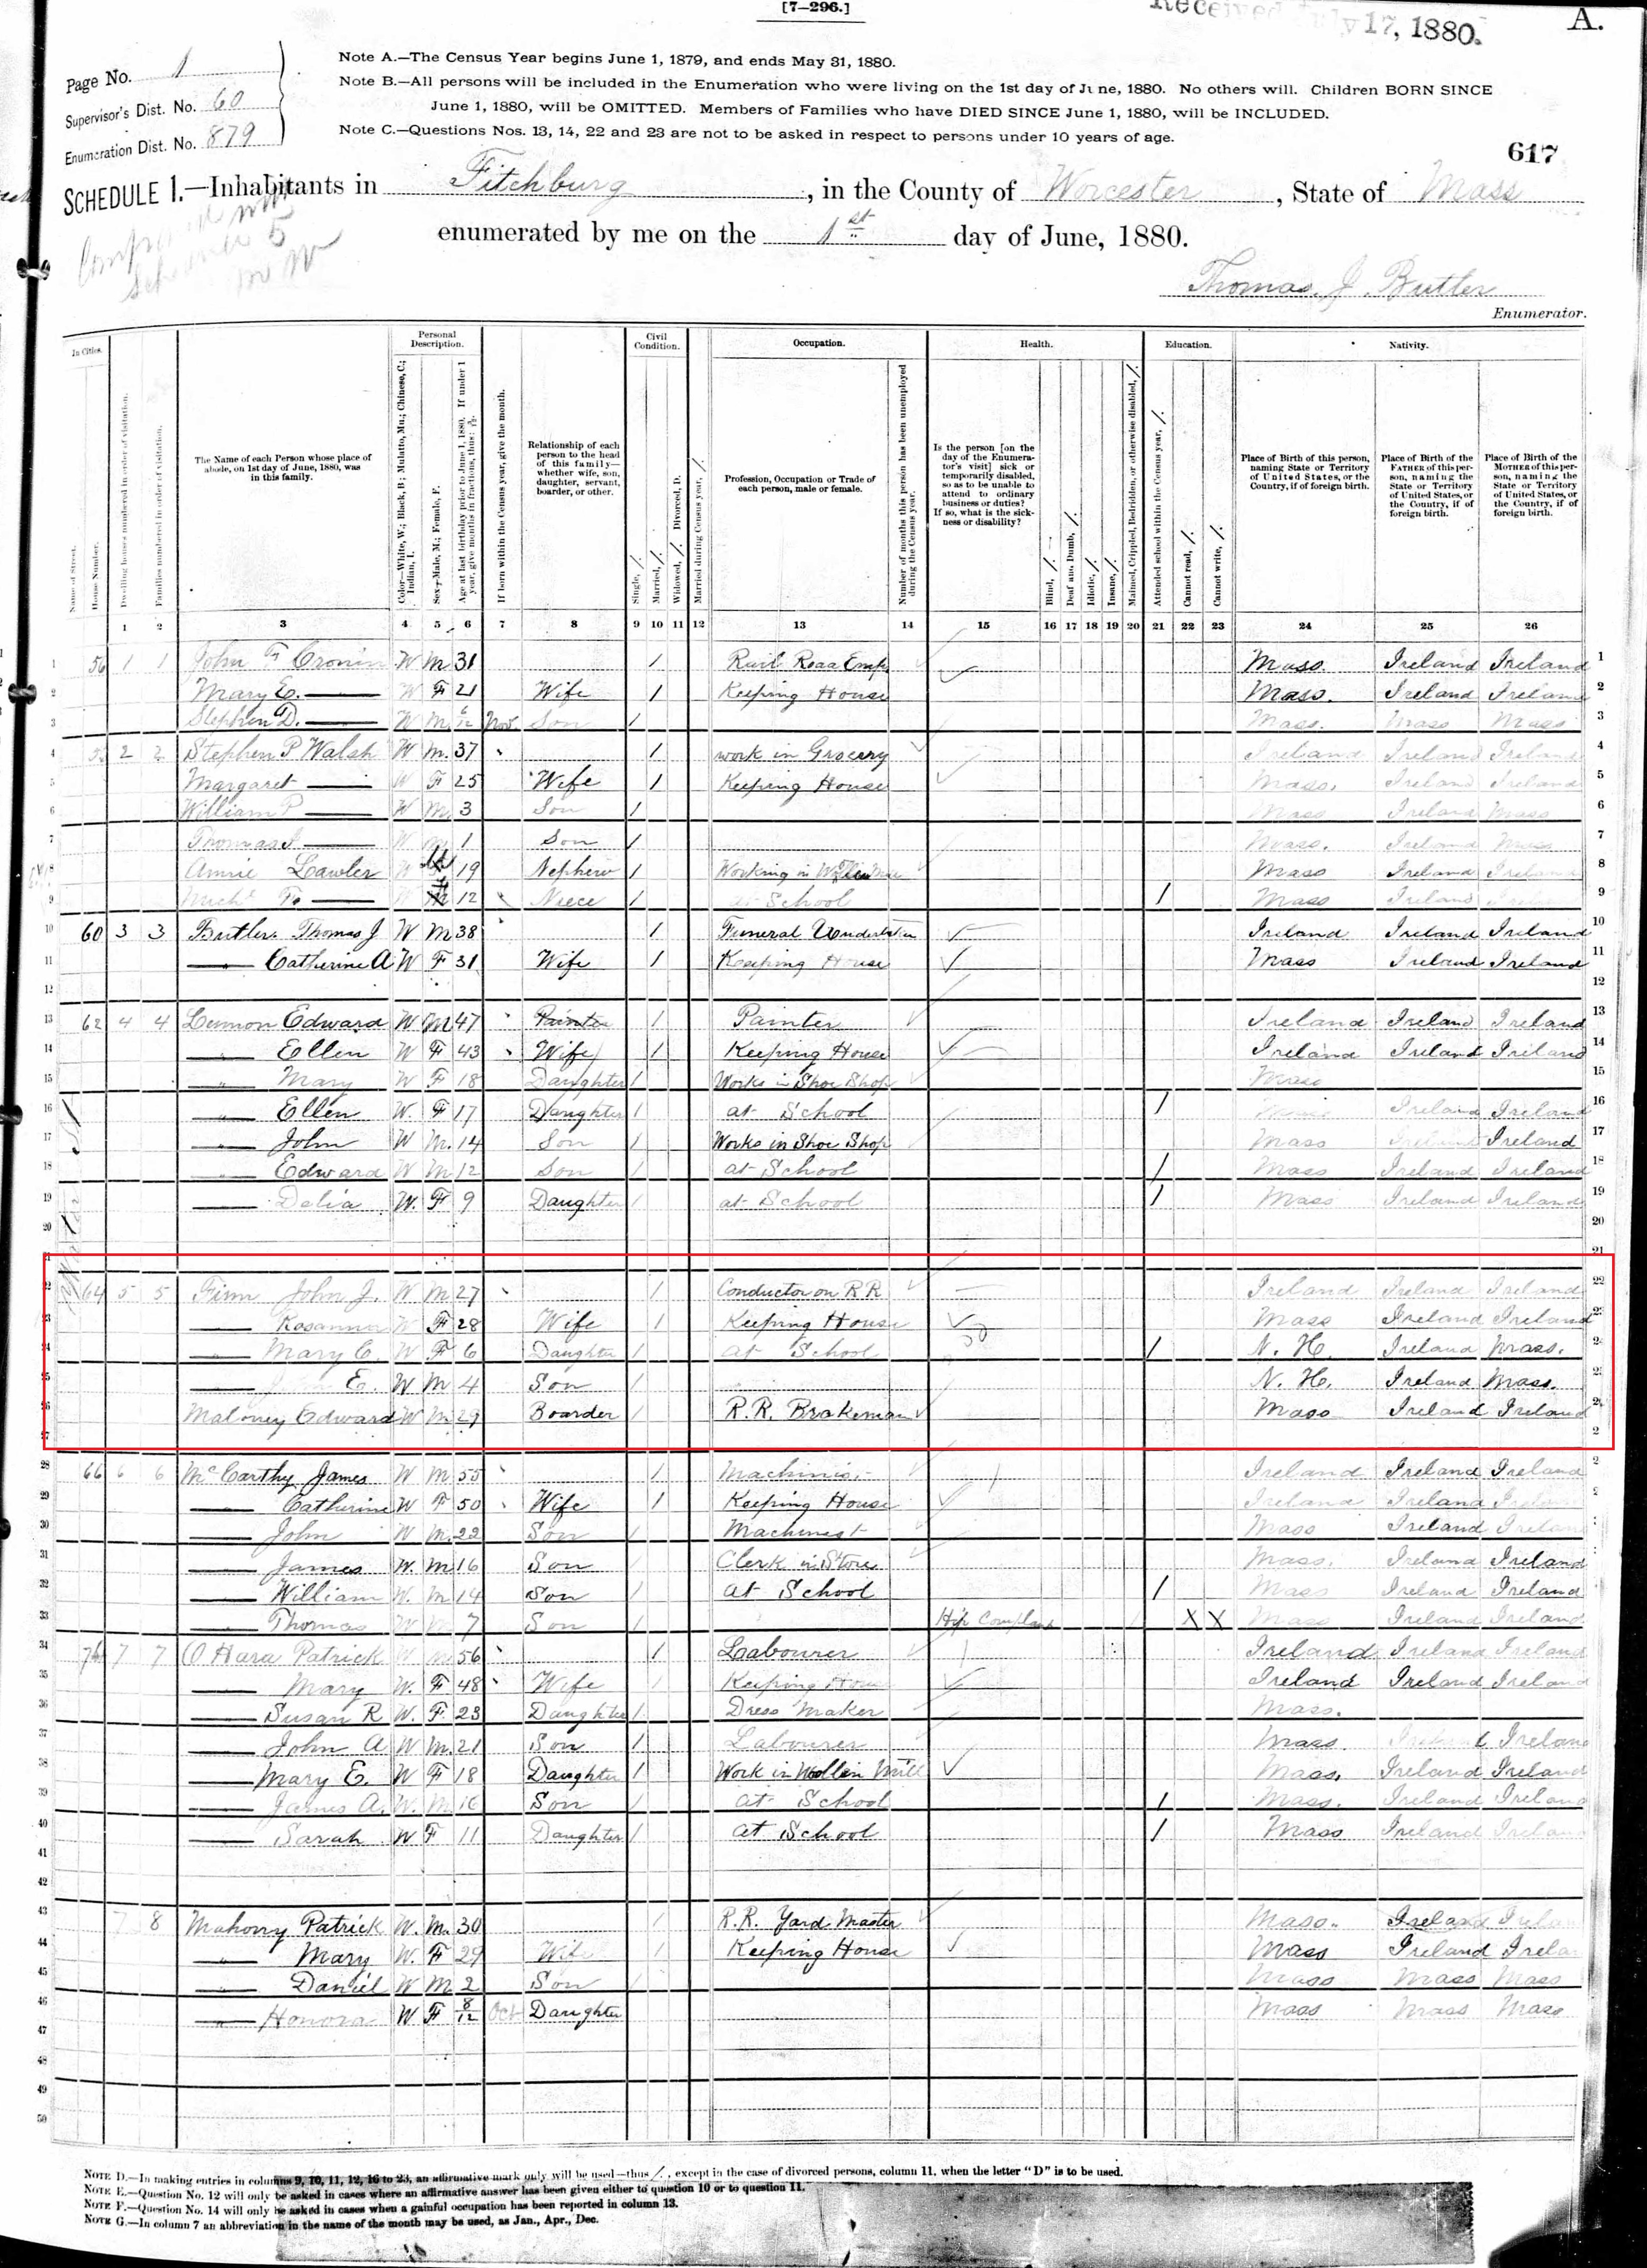 [7-296.]
Received July 17, 1880.
A.
Page No. 1
Supervisor's Dist. No. 60
Enumeration Dist. No. 879
Note A.—The Census Year begins June 1, 1879, and ends May 31, 1880.
Note B.—All persons will be included in the Enumeration who were living on the 1st day of June, 1880. No others will. Children BORN SINCE
June 1, 1880, will be OMITTED. Members of Families who have DIED SINCE June 1, 1880, will be INCLUDED.
Note C.—Questions Nos. 13, 14, 22 and 23 are not to be asked in respect to persons under 10 years of age.
617
SCHEDULE 1.—Inhabitants in Fitchburg, in the County of Worcester, State of Mass
enumerated by me on the 1st day of June, 1880.
Thomas. J. Butler
Enumerator.
In Cities.
Name of Street.
House Number.
Dwelling houses numbered in order of visitation.
Families numbered in order of visitation.
The Name of each Person whose place of abode, on 1st day of June, 1880, was in this family.
Personal Description.
Color—White, W.; Black, B; Mulatto, Mu.; Chinese, C.; Indian, I.
Sex—Male, M.; Female, F.
Age at last birthday prior to June 1, 1880. If under 1 year, give months in fractions, thus:
If born within the Census year, give the month.
Relationship of each person to the head of this family—whether wife, son, daughter, servant, boarder, or other.
Civil Condition.
Single, /.
Married, /.
Widowed, /. Divorced, D.
Married during Census year, /.
Occupation.
Profession, Occupation or Trade of each person, male or female.
Number of months this person has been unemployed during the Census year.
Health.
Is the person [on the day of the Enumerator's visit] sick or temporarily disabled, so as to be unable to attend to ordinary business or duties? If so, what is the sickness or disability?
Blind, /.
Deaf and Dumb, /.
Idiotic, /.
Insane, /.
Maimed, Crippled, Bedridden, or otherwise disabled, /.
Education.
Attended school within the Census year, /.
Cannot read, /.
Cannot write, /.
Nativity.
Place of Birth of this person, naming State or Territory of United States, or the Country, if of foreign birth.
Place of Birth of the FATHER of this person, naming the State or Territory of United States, or the Country, if of foreign birth.
Place of Birth of the MOTHER of this person, naming the State or Territory of United States, or the Country, if of foreign birth.
1 2 3 4 5 6 7 8 9 10 11 12 13 14 15 16 17 18 19 20 21 22 23 24 25 26
1 56 1 1 John F Cronin W M 31 / Rail Road Mass. Ireland Ireland 1
2 Mary E. W F 21 Wife / Keeping House Mass. Ireland Ireland 2
3 Stephen D. W M 6/12 Nov. Son / Mass. Mass Mass 3
4 2 2 Stephen P Walsh W M. 37 / work in Grocery Ireland Ireland Ireland 4
5 Margaret W F 25 Wife / Keeping House Mass. Ireland Ireland 5
6 William P W M. 3 Son / Mass Ireland Mass 6
7 Thomas W M 1 Son / Mass. Ireland Mass 7
8 Annie Lawler W 19 Nephew / Working in Mass Ireland Ireland 8
9 W 12 Neece / at School / Mass Ireland 9
10 60 3 3 Butler. Thomas J W M 38 / Funeral Undertaker Ireland Ireland Ireland 10
11 Catherine A W F 31 Wife / Keeping House Mass Ireland Ireland 11
12 12
13 62 4 4 Lennon Edward W M 47 Painter / Painter Ireland Ireland Ireland 13
14 Ellen W F 43 Wife / Keeping House Ireland Ireland Ireland 14
15 Mary W F 18 Daughter / Works in Shoe Shop Mass 15
16 Ellen W. F 17 Daughter / at School / Ireland Ireland 16
17 John W M. 14 Son / Works in Shoe Shop Mass Ireland Ireland 17
18 Edward W M 12 Son / at School / Mass Ireland Ireland 18
19 Delia W. F 9 Daughter / at School / Mass Ireland Ireland 19
20 20
21 21
22 64 5 5 Finn John J. W M 27 / Conductor on RR Ireland Ireland Ireland 22
23 Rosanna W F 28 Wife / Keeping House Mass Ireland Ireland 23
24 Mary C. W F 6 Daughter / at School / N. H. Ireland Mass.
25 E. W M 4 Son / N. H. Ireland Mass.
26 Maloney Edward W M 29 Boarder / R.R. Brakeman Mass Ireland Ireland
27
28 66 6 6 McCarthy James W M 55 / Machinist Ireland Ireland Ireland
29 Catherine W F 50 Wife / Keeping House Ireland Ireland Ireland
30 John W M. 22 Son / Machinest Mass Ireland Ireland
31 James W. M 16 Son / Clerk in Store Mass. Ireland Ireland
32 William W. M 14 Son / at School / Mass Ireland Ireland
33 Thomas W M 7 Son / Hip Complant X X Mass Ireland Ireland
34 7 7 O Hara Patrick W M 56 / Labourer Ireland Ireland Ireland
35 Mary W. F 48 Wife / Keeping House Ireland Ireland Ireland
36 Susan R W. F. 23 Daughter / Dress Maker Mass.
37 John A W M. 21 Son / Labourer Mass. Ireland
38 Mary E. W F 18 Daughter / Work in Wollen Mill Mass. Ireland Ireland
39 James A. W. M 16 Son / at School / Mass. Ireland Ireland
40 Sarah W F 11 Daughter / at School / Mass Ireland Ireland
41
42
43 7 8 Mahony Patrick W. M. 30 / R.R. Yard Master Mass. Ireland
44 Mary W. F 29 Wife / Keeping House Mass Ireland
45 Daniel W M 2 Son / Mass Mass Mass
46 Honora W F 8/12 Oct Daughter Mass Mass Mass
47
48
49
50
NOTE D.—In making entries in columns 9, 10, 11, 12, 16 to 23, an affirmative mark only will be used—thus /, except in the case of divorced persons, column 11, when the letter "D" is to be used.
NOTE E.—Question No. 12 will only be asked in cases where an affirmative answer has been given either to question 10 or to question 11.
NOTE F.—Question No. 14 will only be asked in cases when a gainful occupation has been reported in column 13.
NOTE G.—In column 7 an abbreviation in the name of the month may be used, as Jan., Apr., Dec.